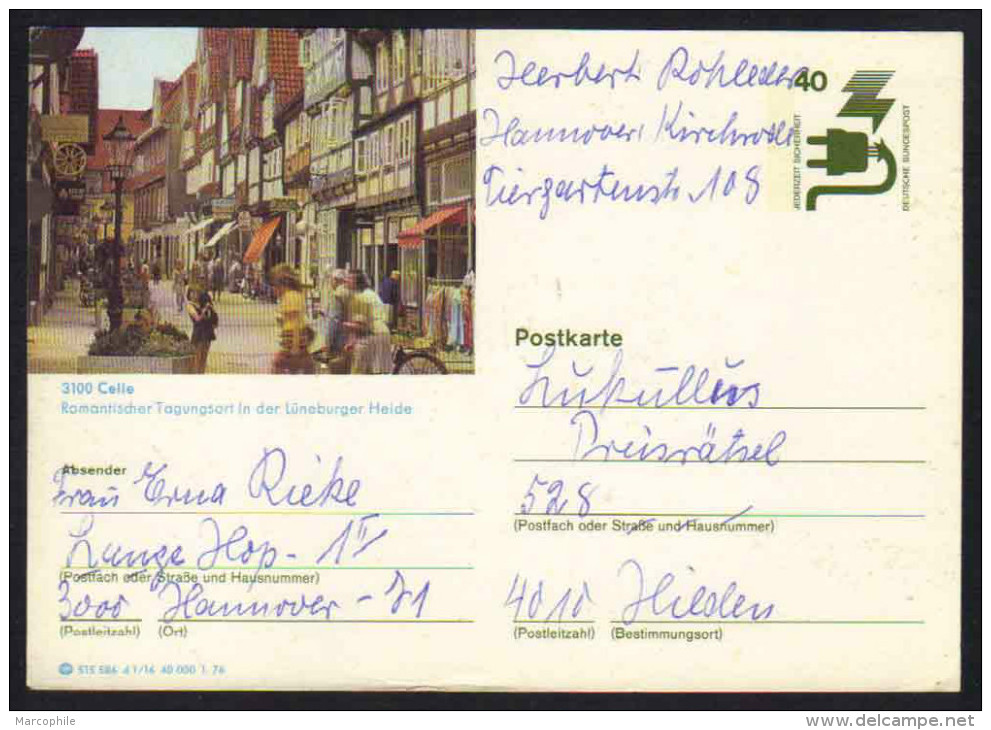 Herbert Rohleder
Hannover, Kirchrode
Tiergartenstr. 108
40
JEDERZEIT SICHERHEIT
DEUTSCHE BUNDESPOST
3100 Celle
Romantischer Tagungsort in der Lüneburger Heide
Postkarte
Lukullus
Preisrätsel
528
(Postfach oder Straße und Hausnummer)
4010 Hilden
(Postleitzahl) (Bestimmungsort)
Absender
Frau Erna Rieke
Lange Hop-
(Postfach oder Straße und Hausnummer)
3000 Hannover - 71
(Postleitzahl) (Ort)
515 586 41/16 40 000 1. 76
Marcophile
delcampe.net